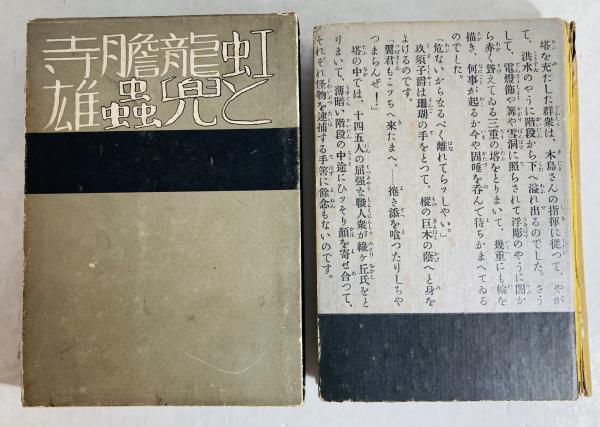 虹と兜蟲
龍膽寺雄
塔を充たした群衆は、木島さんの指揮に従つて、やが
て、洪水のやうに階段から下へ溢れ出るのでした。さう
して、電燈飾や篝や雪洞に照らされて浮彫のやうに闇か
ら赤く聳えてゐる三重の塔をとりまいて、幾重にも輪を
描き、何事が起るか今や固唾を呑んで待ちかまへてゐる
のでした。
「危ないからなるべく離れてらッしやい。」
玖須子爵は珊瑚の手をとつて、樅の巨木の蔭へと身を
よけるのです。
「翼君もこッちへ來たまへ。……捲き添を喰つたりしちや
つまらんぜ！」
塔の中では、十四五人の屈强な職人衆が綠ヶ丘氏をと
りまいて、薄暗い階段の中途にヒッソリ額を寄せ合つて、
それぞれ怪物を逮捕する手筈に餘念もないのです。